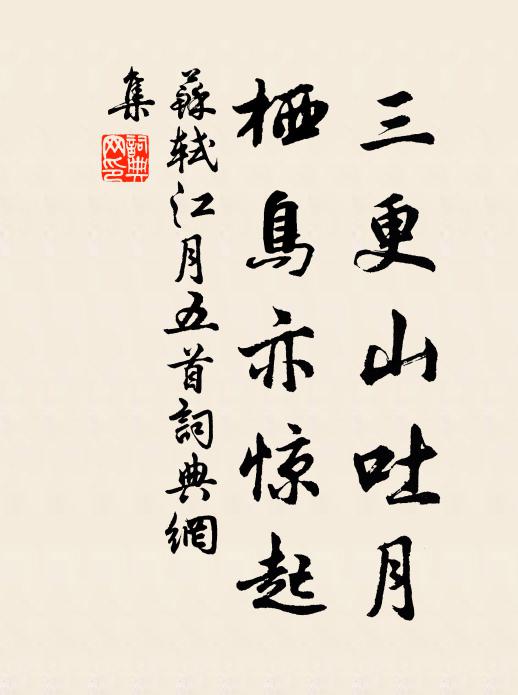 三更山吐月
栖鳥亦惊起
蘇軾江月五首詞典網
集
詞典
网印